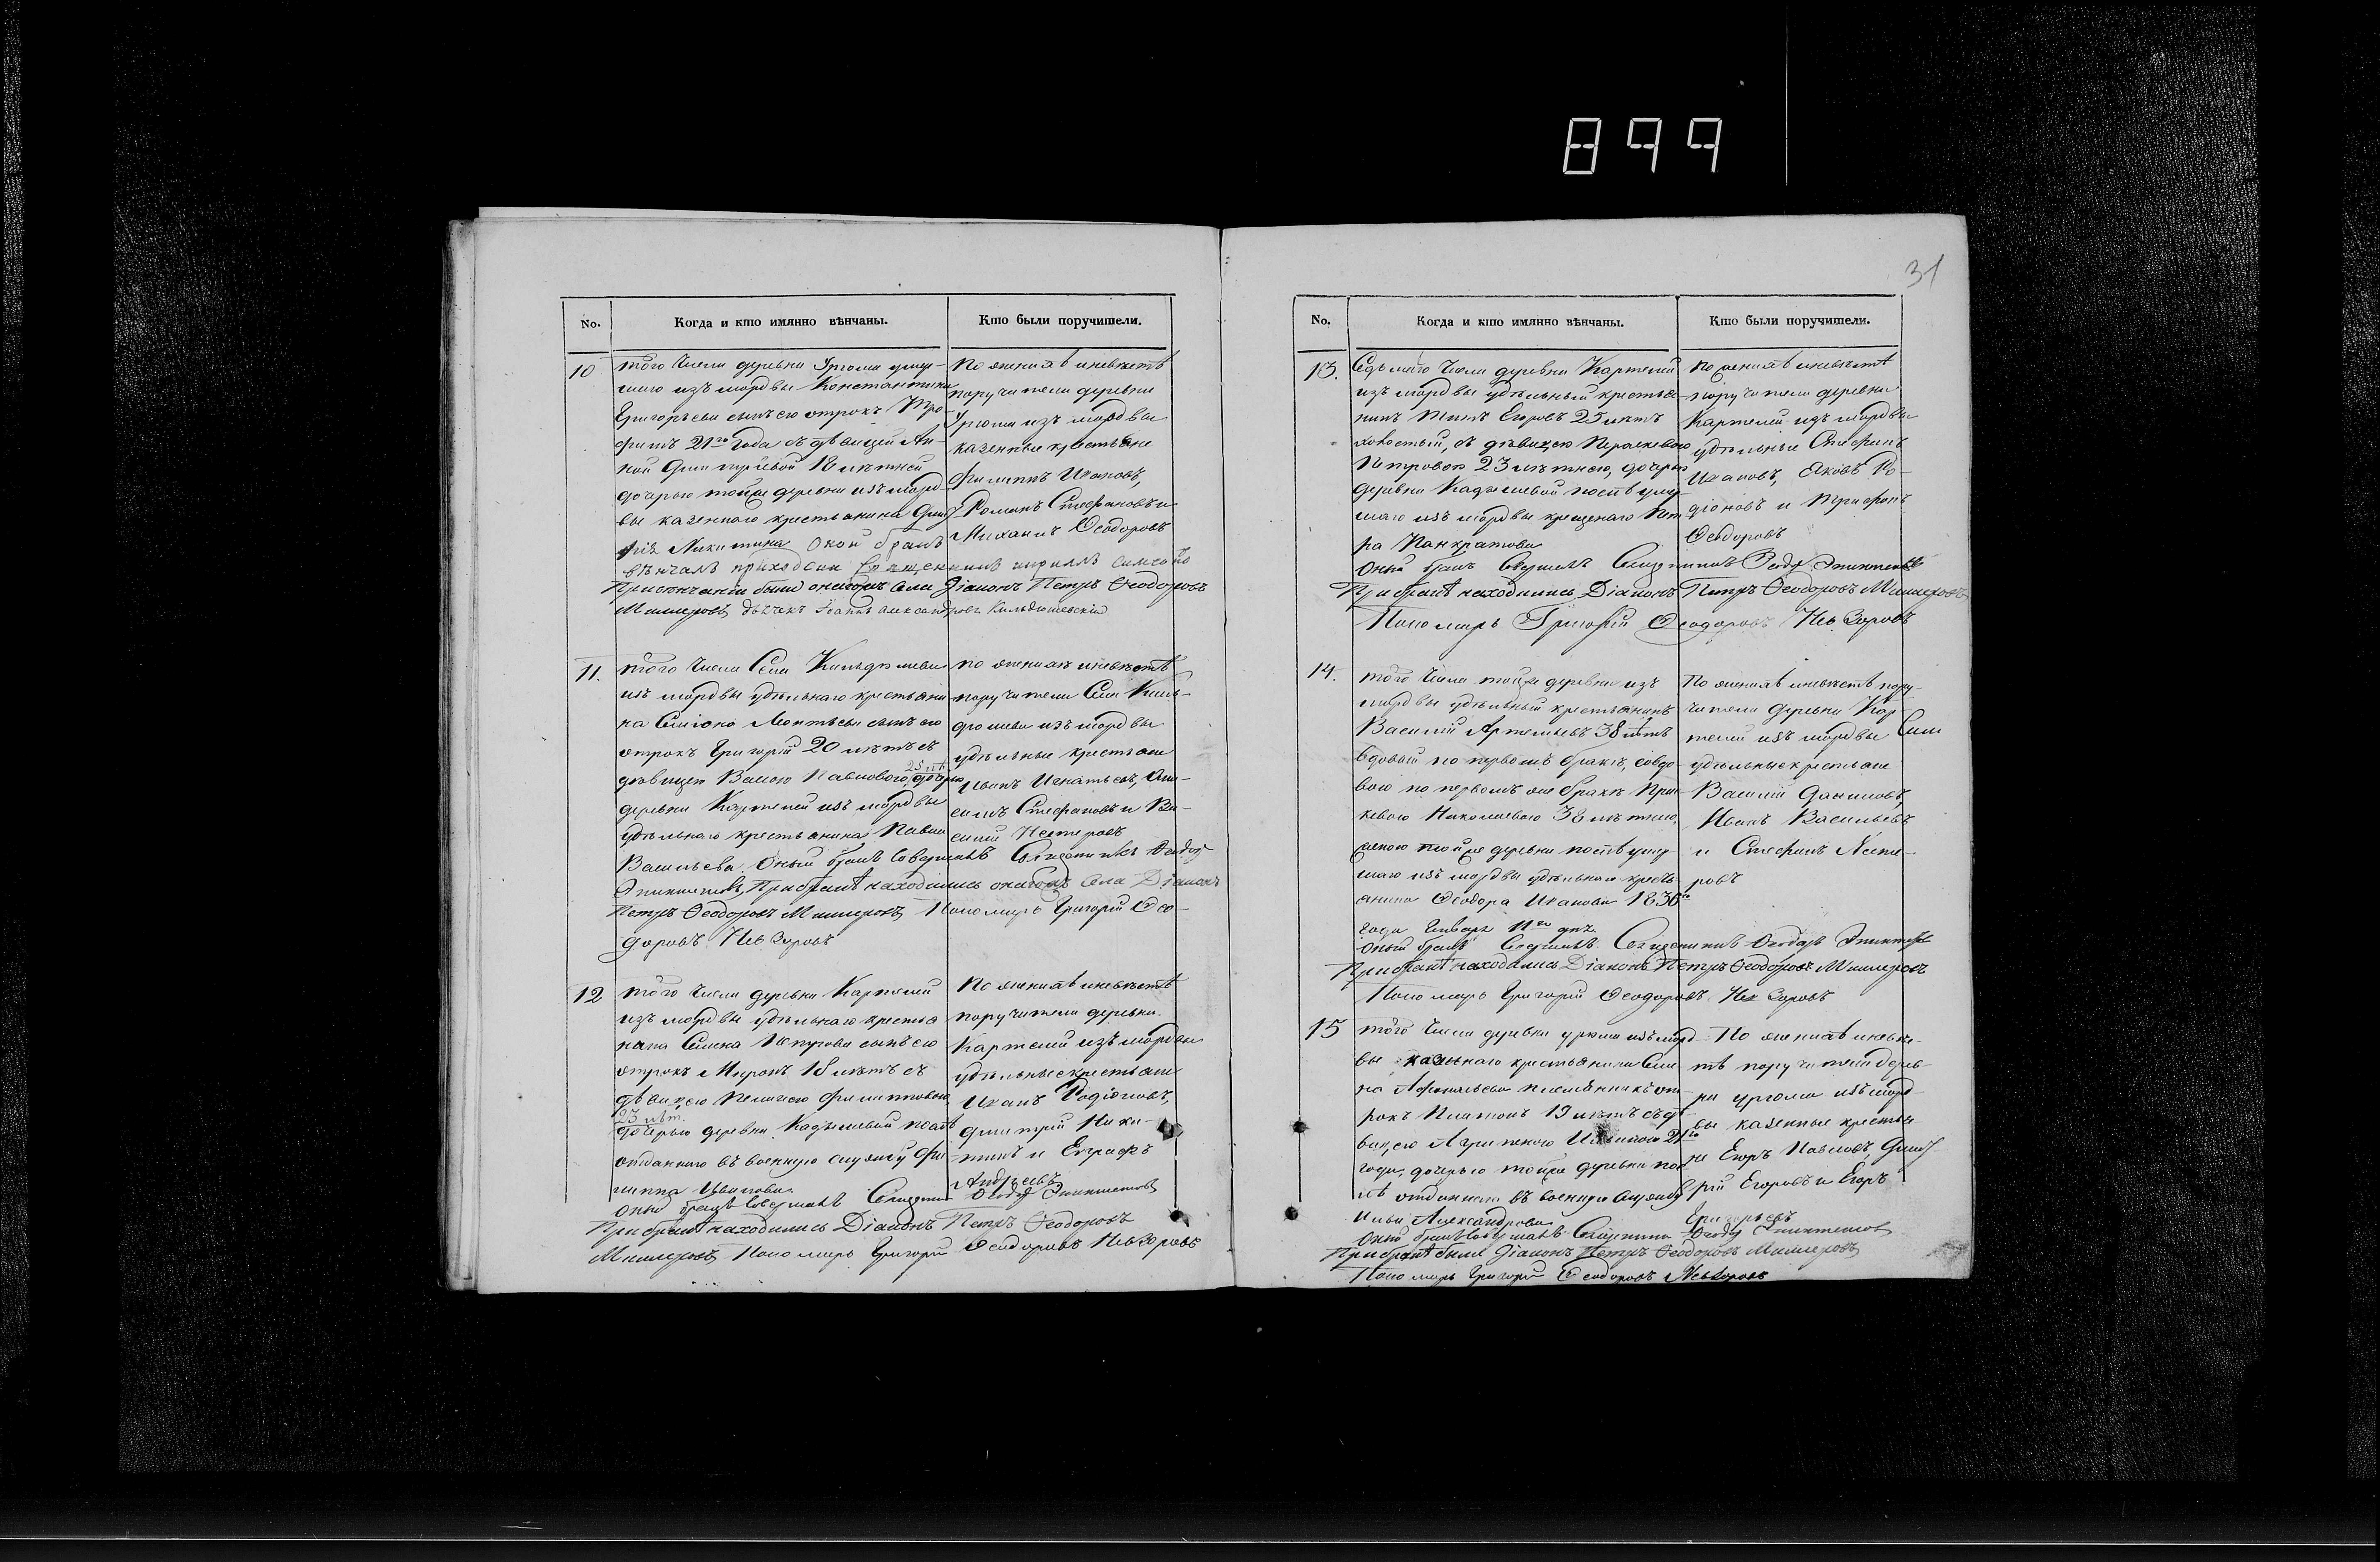 899
31
No. Когда и кто имянно вѣнчаны. Кто были поручители.
10
того числа деревни Уртомы умер-
шаго изъ мордвы Константина
Григорьева сынъ его отрокъ Тро-
фимъ 21го года съ дѣвицей Ан-
ной Дмитріевой 18 лѣтней
дочерью тойже деревни изъ морд-
вы казеннаго крестьянина Дмит
рія Никитина Оной бракъ
вѣнчалъ приходскій
При вѣнчаніи были Діаконъ Петръ Ѳеодоровъ
Миллеровъ дьячекъ Іоаннъ Александровъ Кильдюшевскій
По женихѣ и невѣстѣ
поручители деревни
изъ мордвы
казенные крестьяне
Филиппъ Ивановъ,
Романъ Стефановъ и
Михаилъ Ѳеодоровъ
11.
того числа Села
изъ мордвы удѣльнаго крестьяни
на Симіона Леонтьева сынъ его
отрокъ Григорій 20 лѣтъ съ
дѣвицею Павловою 25 лѣт дочерью
деревни Картлей изъ мордвы
удѣльнаго крестьянина Павла
Васильева. Оный бракъ Совершалъ Священникъ Ѳеодоръ
При бракѣ находились онагожъ Села Діаконъ
Петръ Ѳеодоровъ Миллеровъ Пономарь Григорій Ѳео-
доровъ Невзоровъ
по женихѣ и невѣстѣ
поручители Села Киль-
изъ мордвы
удѣльные крестьяне
Иванъ Игнатьевъ,
Стефановъ и Ва-
силій Нестеровъ
12
того числа деревни Картлей
изъ мордвы удѣльнаго крестья
нина Семена Петрова сынъ его
отрокъ Миронъ 18 лѣтъ съ
дѣвицею Пелагею Филипповою
23 лѣт.
дочерью деревни Кадышевой послѣ
отданнаго въ военную службу Фи
липпа Иванова.
Оный бракъ Совершалъ Священникъ Ѳеодоръ
При бракѣ находились Діаконъ Петръ Ѳеодоровъ
Миллеровъ Пономарь Григорій Ѳеодоровъ Невзоровъ
По женихѣ и невѣстѣ
поручители деревни
Картлей изъ мордвы
удѣльные крестьяне
Иванъ Родіоновъ,
Дмитрій Ники-
тинъ и Евграфъ
Андреевъ
No. Когда и кто имянно вѣнчаны. Кто были поручители.
13.
Седьмаго числа деревни Картлей
изъ мордвы удѣльный крестья-
нинъ Титъ Егоровъ 25 лѣтъ
холостый, съ дѣвицею Параскевою
Петровою 23 лѣтнею, дочерью
деревни Кадышевой послѣ умер
шаго изъ мордвы крещенаго Пет
ра Панкратова
Оный бракъ Совершалъ Священникъ Ѳеодоръ
При бракѣ находились Діаконъ Петръ Ѳеодоровъ Миллеровъ
Пономарь Григорій Ѳеодоровъ Невзоровъ
по женихѣ и невѣстѣ
поручители деревни
Картлей изъ мордвы
удѣльные Стефанъ
Ивановъ, Яковъ Ро-
діоновъ и Трифонъ
Ѳеодоровъ
14.
того числа тойже деревни изъ
мордвы удѣльный крестьянинъ
Василій Артемьевъ 38 лѣтъ
вдовый по первомъ бракѣ, со вдо-
вою по первомъ же бракѣ Прас-
кевою Николаевою 38 лѣтнею,
женою тойже деревни послѣ умер
шаго изъ мордвы удѣльнаго кресть-
янина Ѳеодора Иванова 1836го
года Генваря 11го дня
Оный бракъ Совершалъ Священникъ Ѳеодоръ
При бракѣ находились Діаконъ Петръ Ѳеодоровъ Миллеровъ
Пономарь Григорій Ѳеодоровъ Невзоровъ
По женихѣ и невѣстѣ пору-
чители деревни Кар-
тлей изъ мордвы
удѣльные крестьяне
Василій Даниловъ,
Иванъ Васильевъ
и Стефанъ Несте-
ровъ
15
того числа деревни Уртомы изъ морд
вы казеннаго крестьянина Семе
на Афанасьева племянникъ от
рокъ Платонъ 19 лѣтъ съ дѣ-
вицею Ильиною 21го
года, дочерью тойже деревни пос
лѣ отданнаго въ военную службу
Ильи Александрова
Оный бракъ Совершалъ Священникъ Ѳеодоръ
При бракѣ были Діаконъ Петръ Ѳеодоровъ Миллеровъ
Пономарь Григорій Ѳеодоровъ Невзоровъ
По женихѣ и невѣс-
тѣ поручители дерев-
ни Уртомы изъ морд-
вы казенные крестья-
не Егоръ Павловъ, Дмит-
рій Егоровъ и Егоръ
Григорьевъ